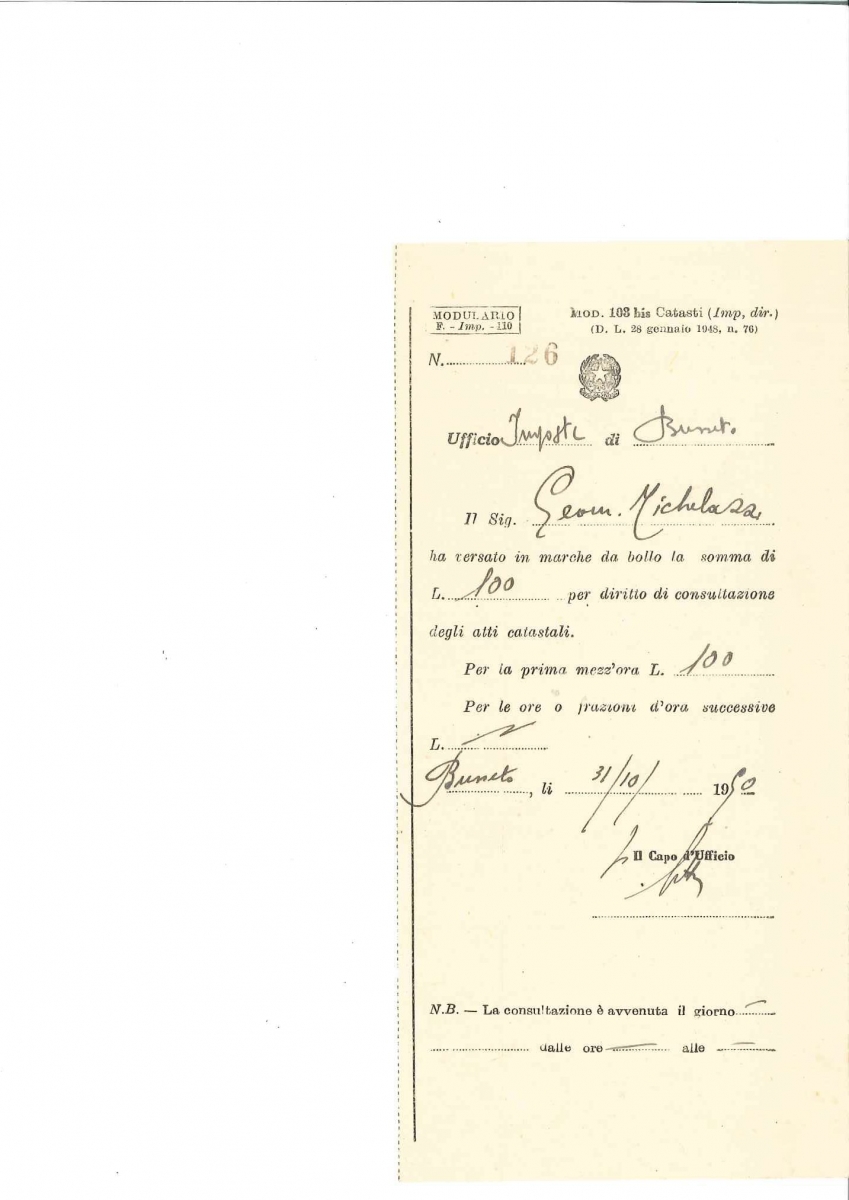 MODULARIO
F. - Imp. - 110
MOD. 103 bis Catasti (Imp, dir.)
(D. L. 28 gennaio 1948, n. 76)
N. 126
Ufficio Imposte di Busseto
Il Sig. Geom. Michelazzi
ha versato in marche da bollo la somma di
L. 100 per diritto di consultazione
degli atti catastali.
Per la prima mezz'ora L. 100
Per le ore o frazioni d'ora successive
L.
Busseto, li 31/10/ 1950
Il Capo d'Ufficio
N.B. — La consultazione è avvenuta il giorno
dalle ore alle